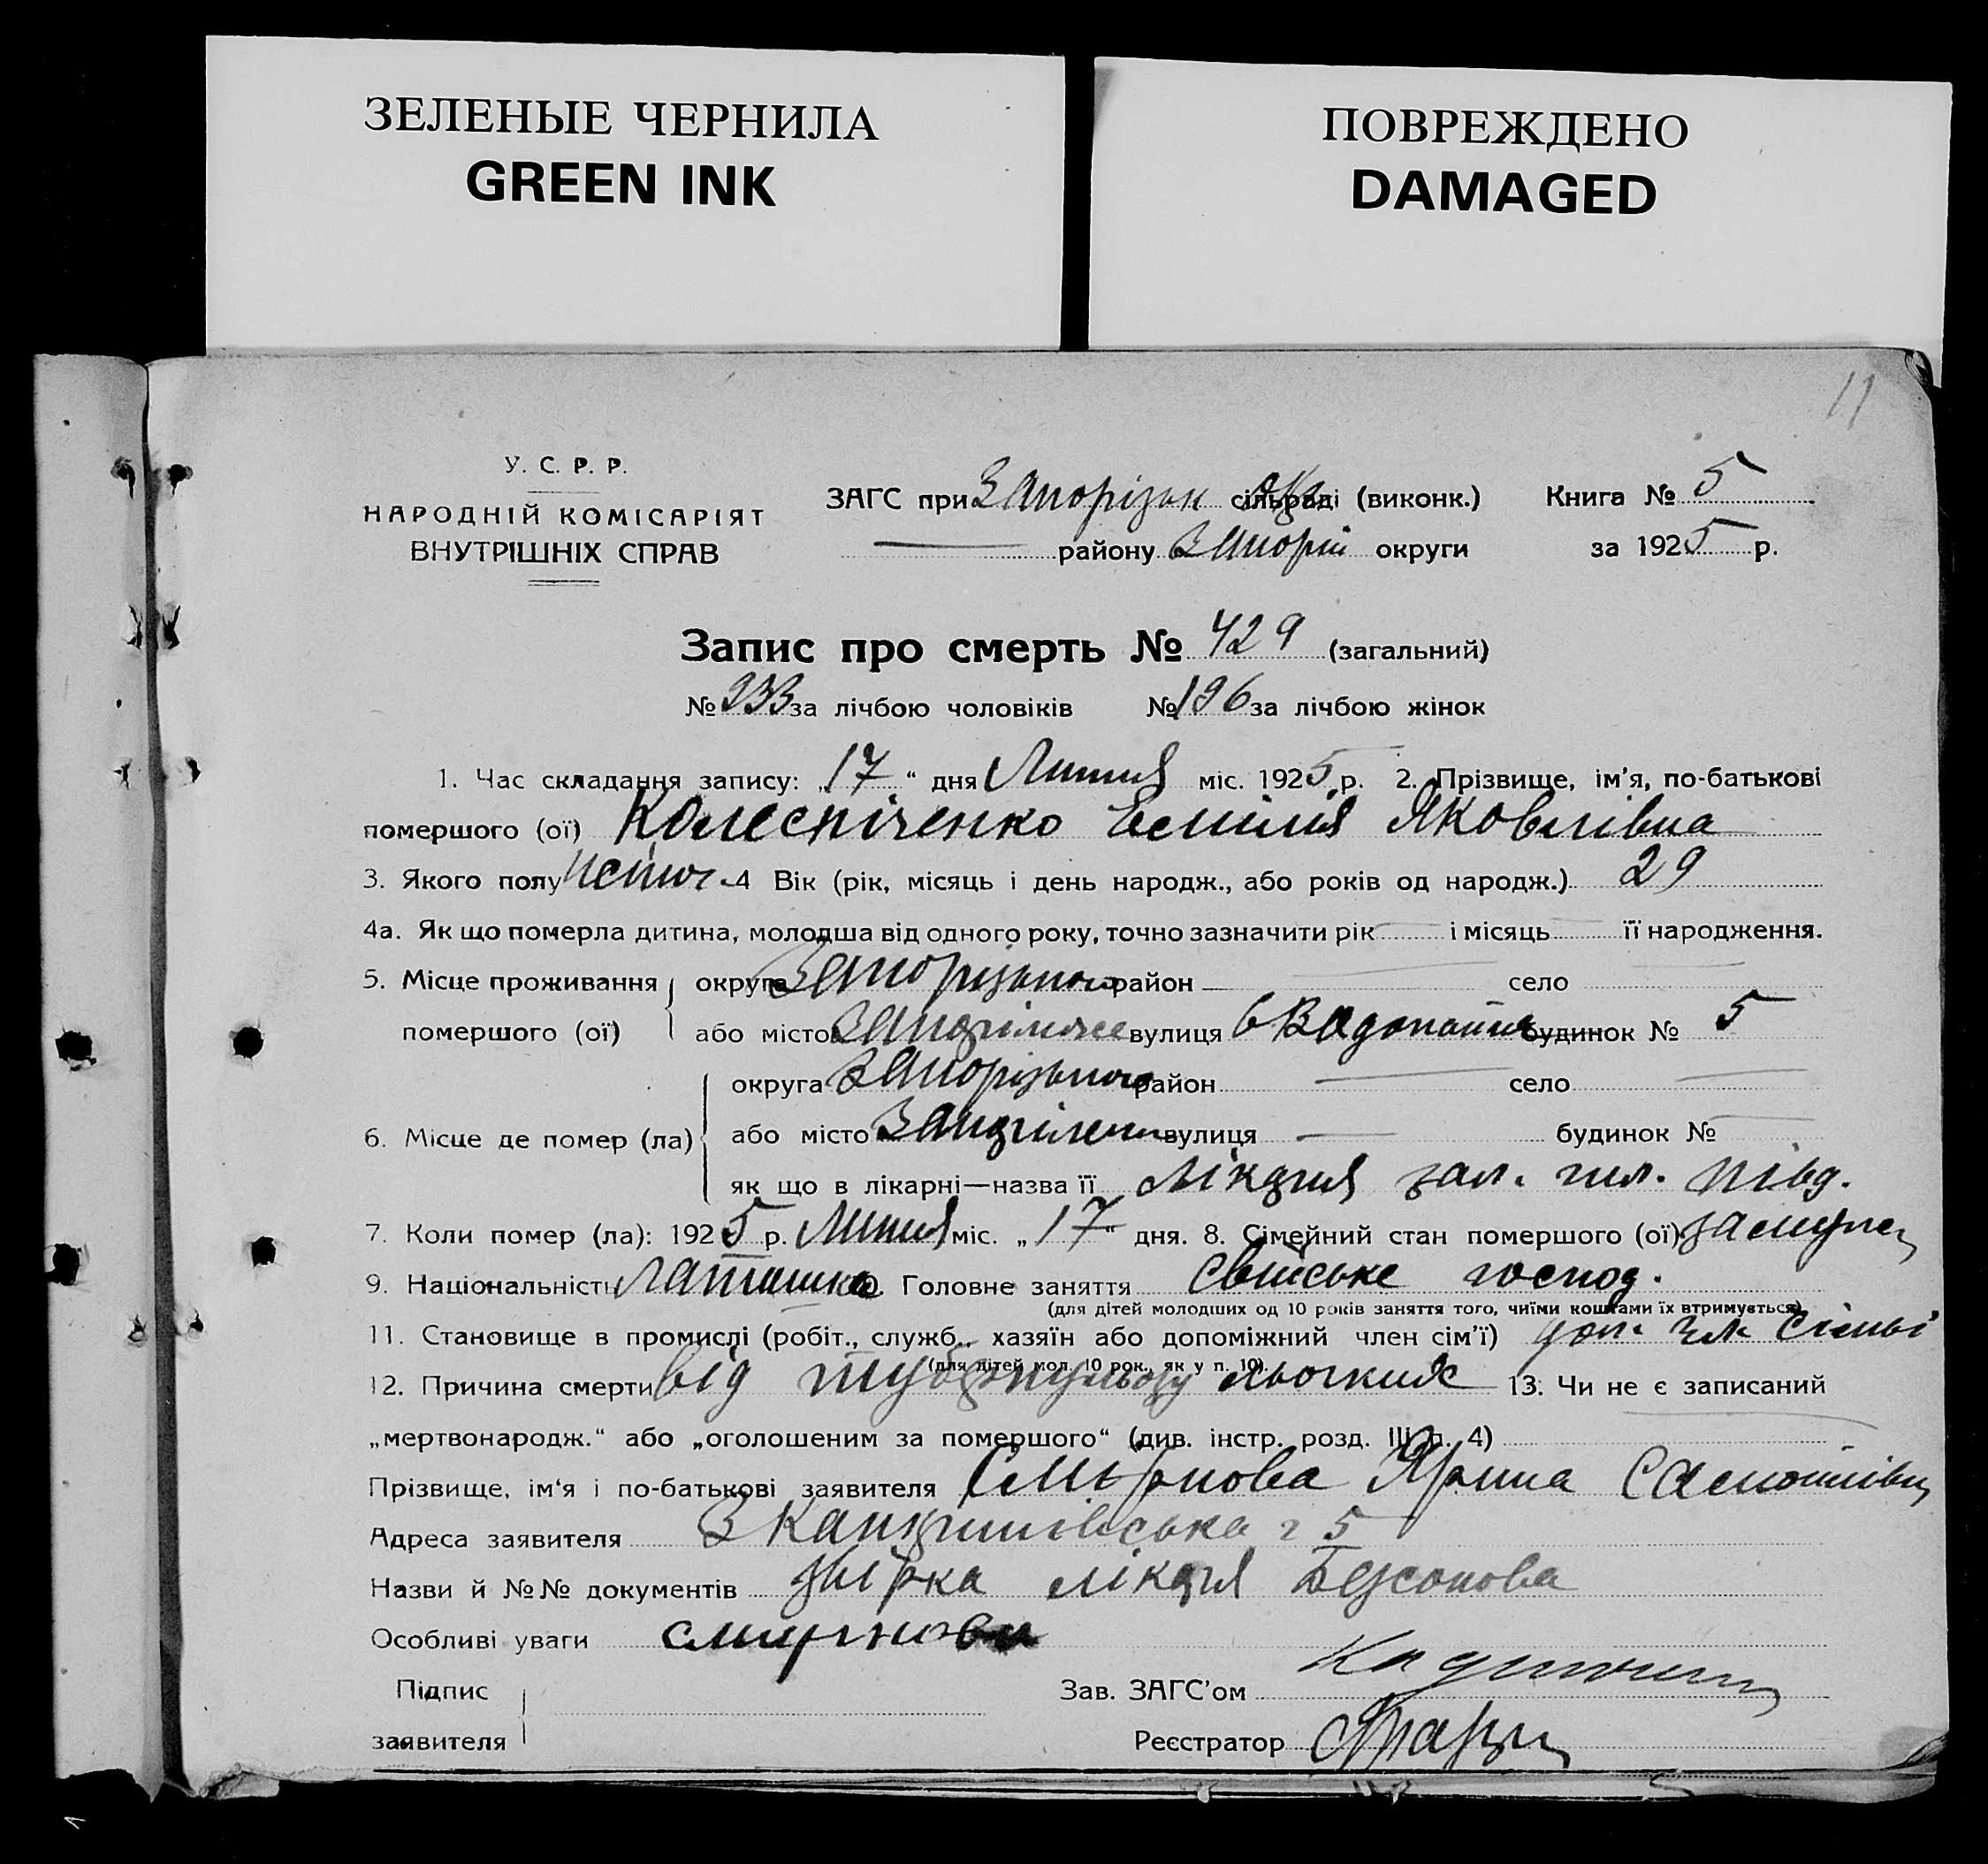 ЗЕЛЕНЫЕ ЧЕРНИЛА
GREEN INK
ПОВРЕЖДЕНО
DAMAGED
11
У. С. Р. Р.
НАРОДНІЙ КОМІСАРІЯТ
ВНУТРІШНІХ СПРАВ
ЗАГС при Запорізьк окр сільраді (виконк.) Книга № 5
району Запоріж округи за 1925 р.
Запис про смерть № 429 (загальний)
№ 233 за лічбою чоловіків № 196 за лічбою жінок
1. Час складання запису: „17“ дня Липня міс. 1925 р. 2. Прізвище, ім’я, по-батькові
помершого (ої) Колесніченко Емілія Яковлівна
3. Якого полу 4 Вік (рік, місяць і день народж., або років од народж.) 29
4а. Як що померла дитина, молодша від одного року, точно зазначити рік і місяць її народження.
5. Місце проживання округа Запорізького район село
помершого (ої) або місто Запоріжжє вулиця будинок № 5
округа Запорізького район село
6. Місце де помер (ла) або місто Запоріжжє вулиця будинок №
як що в лікарні—назва її лікарня зал. півд.
7. Коли помер (ла): 1925 р. Липня міс. „17“ дня. 8. Сімейний стан помершого (ої) замужн
9. Національність Латишка 10. Головне заняття Свійське господ.
(для дітей молодших од 10 років заняття того, чиїми коштами їх втримується)
11. Становище в промислі (робіт., служб., хазяїн або допоміжний член сім’ї) доп. чл. сімьі
(для дітей мол. 10 рок., як у п. 10).
12. Причина смерти від туберкульозу льогких 13. Чи не є записаний
„мертвонародж.“ або „оголошеним за помершого“ (див. інстр. розд. III п. 4)
Прізвище, ім‘я і по-батькові заявителя Смирнова Ярина
Адреса заявителя 5
Назви й №№ документів лікаря Безсонова
Особливі уваги Смирнова
Підпис
заявителя
Зав. ЗАГС’ом
Реєстратор